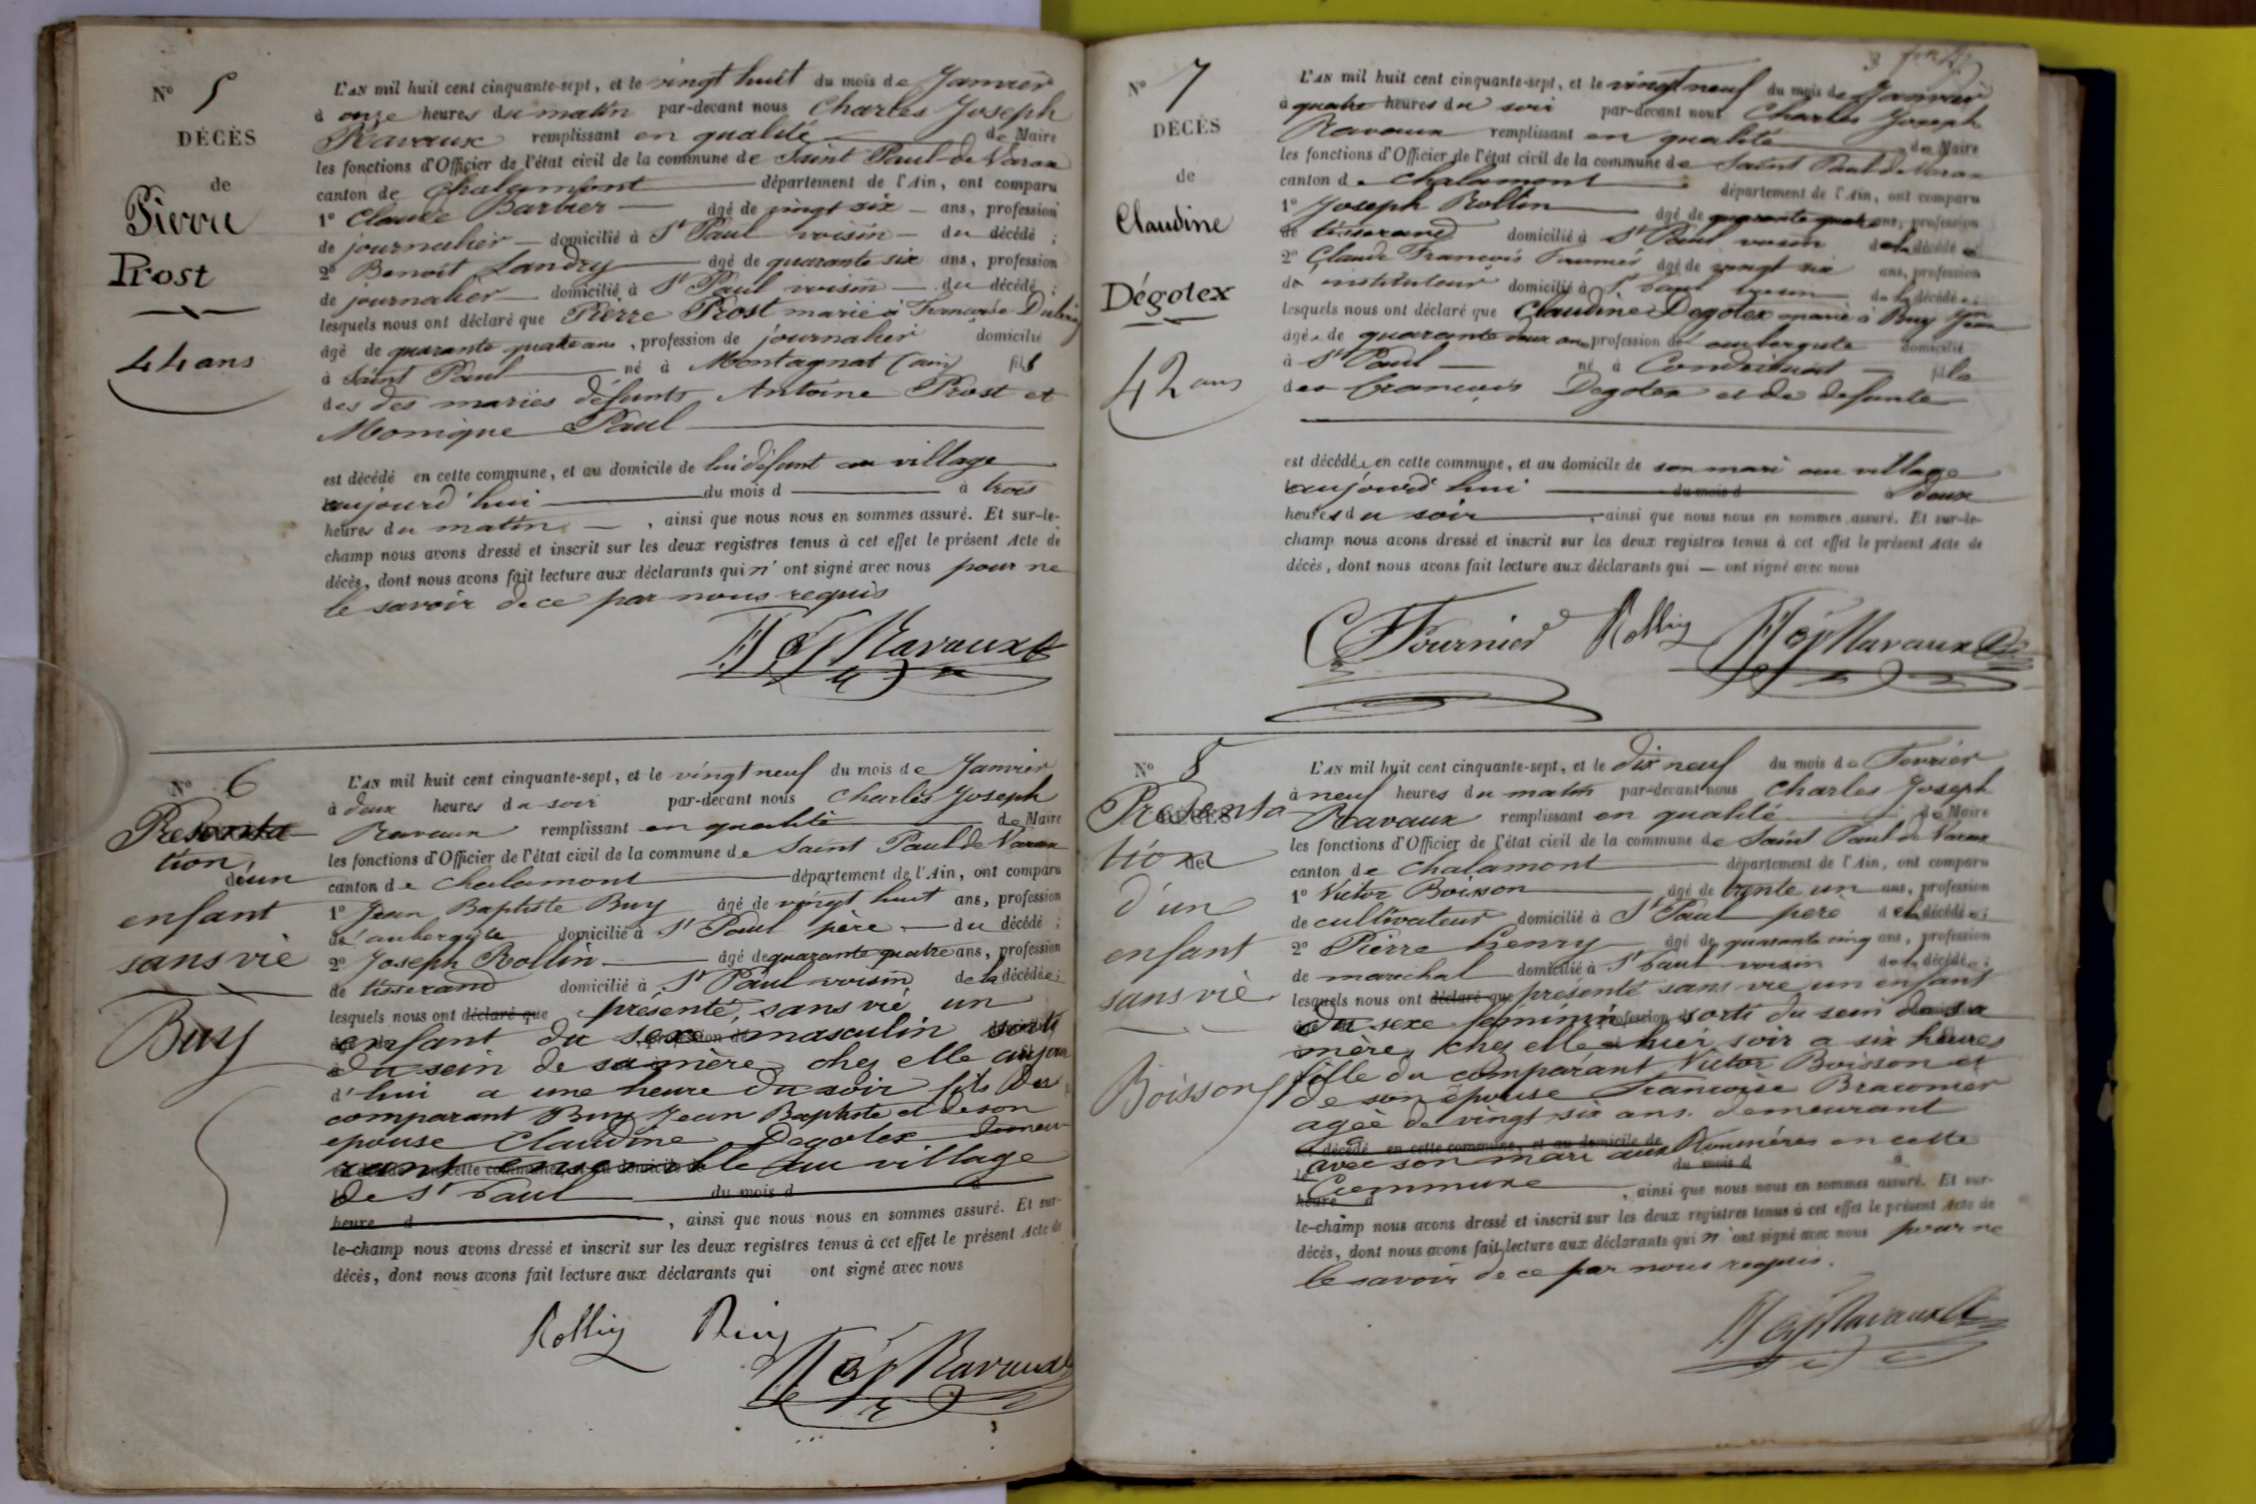 N° 5
DÉCÈS
de
Pierre
Prost
44 ans
L'AN mil huit cent cinquante-sept, et le vingt huit du mois de Janvier
à onze heures du matin par-devant nous Charles Joseph
Ravaux remplissant en qualité de Maire
les fonctions d'Officier de l'état civil de la commune de Saint Paul de Varax
canton de Chalamont département de l'Ain, ont comparu
1° Claude Barbier âgé de vingt six ans, profession
de journalier domicilié à St Paul voisin du décédé ;
2° Benoit Landry âgé de quarante six ans, profession
de journalier domicilié à St Paul voisin du décédé ;
lesquels nous ont déclaré que Pierre Prost marié à Françoise
âgé de quarante quatre ans, profession de journalier domicilié
à Saint Paul né à Montagnat (ain) fils
des des mariés défunts Antoine Prost et
Monique Paul
est décédé en cette commune, et au domicile de lui défunt au village
aujourd'hui du mois d à trois
heures du matin, ainsi que nous nous en sommes assuré. Et sur-le-
champ nous avons dressé et inscrit sur les deux registres tenus à cet effet le présent Acte de
décès, dont nous avons fait lecture aux déclarants qui n'ont signé avec nous pour ne
le savoir de ce par nous requis
Ravaux
N° 6
Présenta
tion
d'un
enfant
sans vie
Buy
L'AN mil huit cent cinquante-sept, et le vingt neuf du mois de Janvier
à deux heures du soir par-devant nous Charles Joseph
Ravaux remplissant en qualité de Maire
les fonctions d'Officier de l'état civil de la commune de Saint Paul de Varax
canton de Chalamont département de l'Ain, ont comparu
1° Jean Baptiste Buy âgé de vingt huit ans, profession
de aubergiste domicilié à St Paul père du décédé ;
2° Joseph Rollin âgé de quarante quatre ans, profession
de tisserand domicilié à St Paul voisin de la décédée ;
lesquels nous ont déclaré que présenté, sans vie un
enfant du sexe masculin sorti
du sein de sa mère, chez elle aujour
d'hui a une heure du soir fils du
comparant Buy Jean Baptiste et de son
epouse Claudine Degotex demeu
rant ensemble au village
de St Paul du mois d à
heure d, ainsi que nous nous en sommes assuré. Et sur-
le-champ nous avons dressé et inscrit sur les deux registres tenus à cet effet le présent Acte de
décès, dont nous avons fait lecture aux déclarants qui ont signé avec nous
Rollin Buy
Ravaux
N° 7
DÉCÈS
de
Claudine
Dégotex
42 ans
3
L'AN mil huit cent cinquante-sept, et le vingt neuf du mois de Janvier
à quatre heures du soir par-devant nous Charles Joseph
Ravaux remplissant en qualité de Maire
les fonctions d'Officier de l'état civil de la commune de Saint Paul de Varax
canton de Chalamont département de l'Ain, ont comparu
1° Joseph Rollin âgé de quarante quatre ans, profession
de tisserand domicilié à St Paul voisin de la décédée
2° Claude François âgé de vingt six ans, profession
de instituteur domicilié à St Paul voisin de la décédée ;
lesquels nous ont déclaré que Claudine Degotex marié à Buy Jean
âgée de quarante deux ans profession de aubergiste domicilié
à St Paul né à fille
des François Degotex et de defunte
est décédée en cette commune, et au domicile de son mari au village
aujourd'hui du mois d à deux
heures du soir, ainsi que nous nous en sommes assuré. Et sur-le-
champ nous avons dressé et inscrit sur les deux registres tenus à cet effet le présent Acte de
décès, dont nous avons fait lecture aux déclarants qui ont signé avec nous
C F Fournier Rollin Ravaux
N° 8
DÉCÈS
Présenta
tion
de
d'un
enfant
sans vie
Boisson
L'AN mil huit cent cinquante-sept, et le dix neuf du mois de Fevrier
à neuf heures du matin par-devant nous Charles Joseph
Ravaux remplissant en qualité de Maire
les fonctions d'Officier de l'état civil de la commune de Saint Paul de Varax
canton de Chalamont département de l'Ain, ont comparu
1° Victor Boisson âgé de trente un ans, profession
de cultivateur domicilié à St Paul père de la décédée ;
2° Pierre Henry âgé de quarante cinq ans, profession
de marechal domicilié à St Paul voisin de la décédée ;
lesquels nous ont déclaré que présenté sans vie un enfant
du sexe feminin sorti du sein de sa
mère, chez elle hier soir a six heures
fille du comparant Victor Boisson et
de son épouse Françoise
agée de vingt six ans demeurant
décédé en cette commune, et au domicile de
avec son mari aux en cette
du mois d
Commune
heure d, ainsi que nous nous en sommes assuré. Et sur-
le-champ nous avons dressé et inscrit sur les deux registres tenus à cet effet le présent Acte de
décès, dont nous avons fait lecture aux déclarants qui n'ont signé avec nous pour ne
le savoir de ce par nous requis.
Ravaux